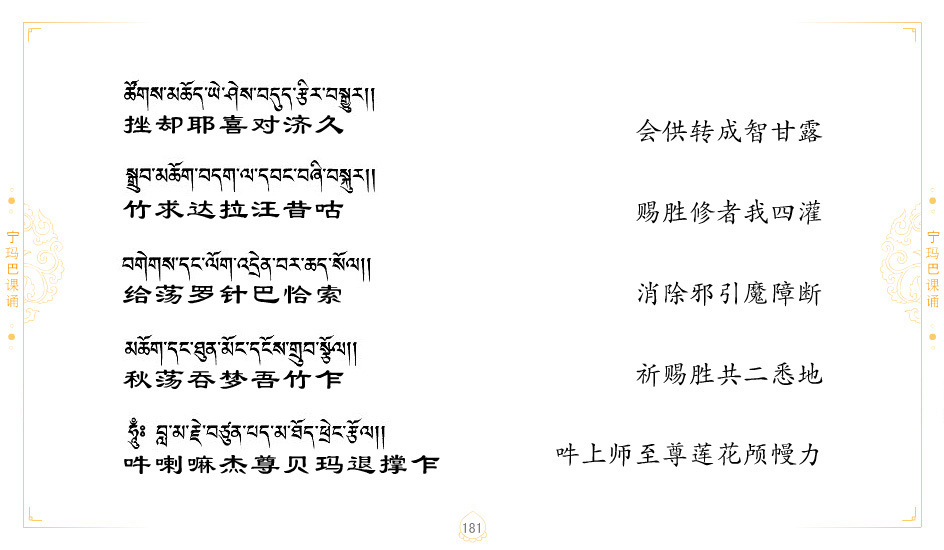 ཚོགས་མཆོད་ཡེ་ཤེས་བདུད་རྩིར་བསྒྱུར།།
挫却耶喜对济久
会供转成智甘露
སྒྲུབ་མཆོག་བདག་ལ་དབང་བཞི་བསྐུར།།
竹求达拉汪昔咕
赐胜修者我四灌
བགེགས་དང་ལོག་འདྲེན་བར་ཆད་སོལ།།
给荡罗针巴恰索
消除邪引魔障断
མཆོག་དང་ཐུན་མོང་དངོས་གྲུབ་སྩོལ།།
秋荡吞梦吾竹乍
祈赐胜共二悉地
ཧཱུྃ༔ བླ་མ་རྗེ་བཙུན་པད་མ་ཐོད་ཕྲེང་རྩོལ།།
吽喇嘛杰尊贝玛退撑乍
吽上师至尊莲花颅幔力
宁玛巴课诵
宁玛巴课诵
181